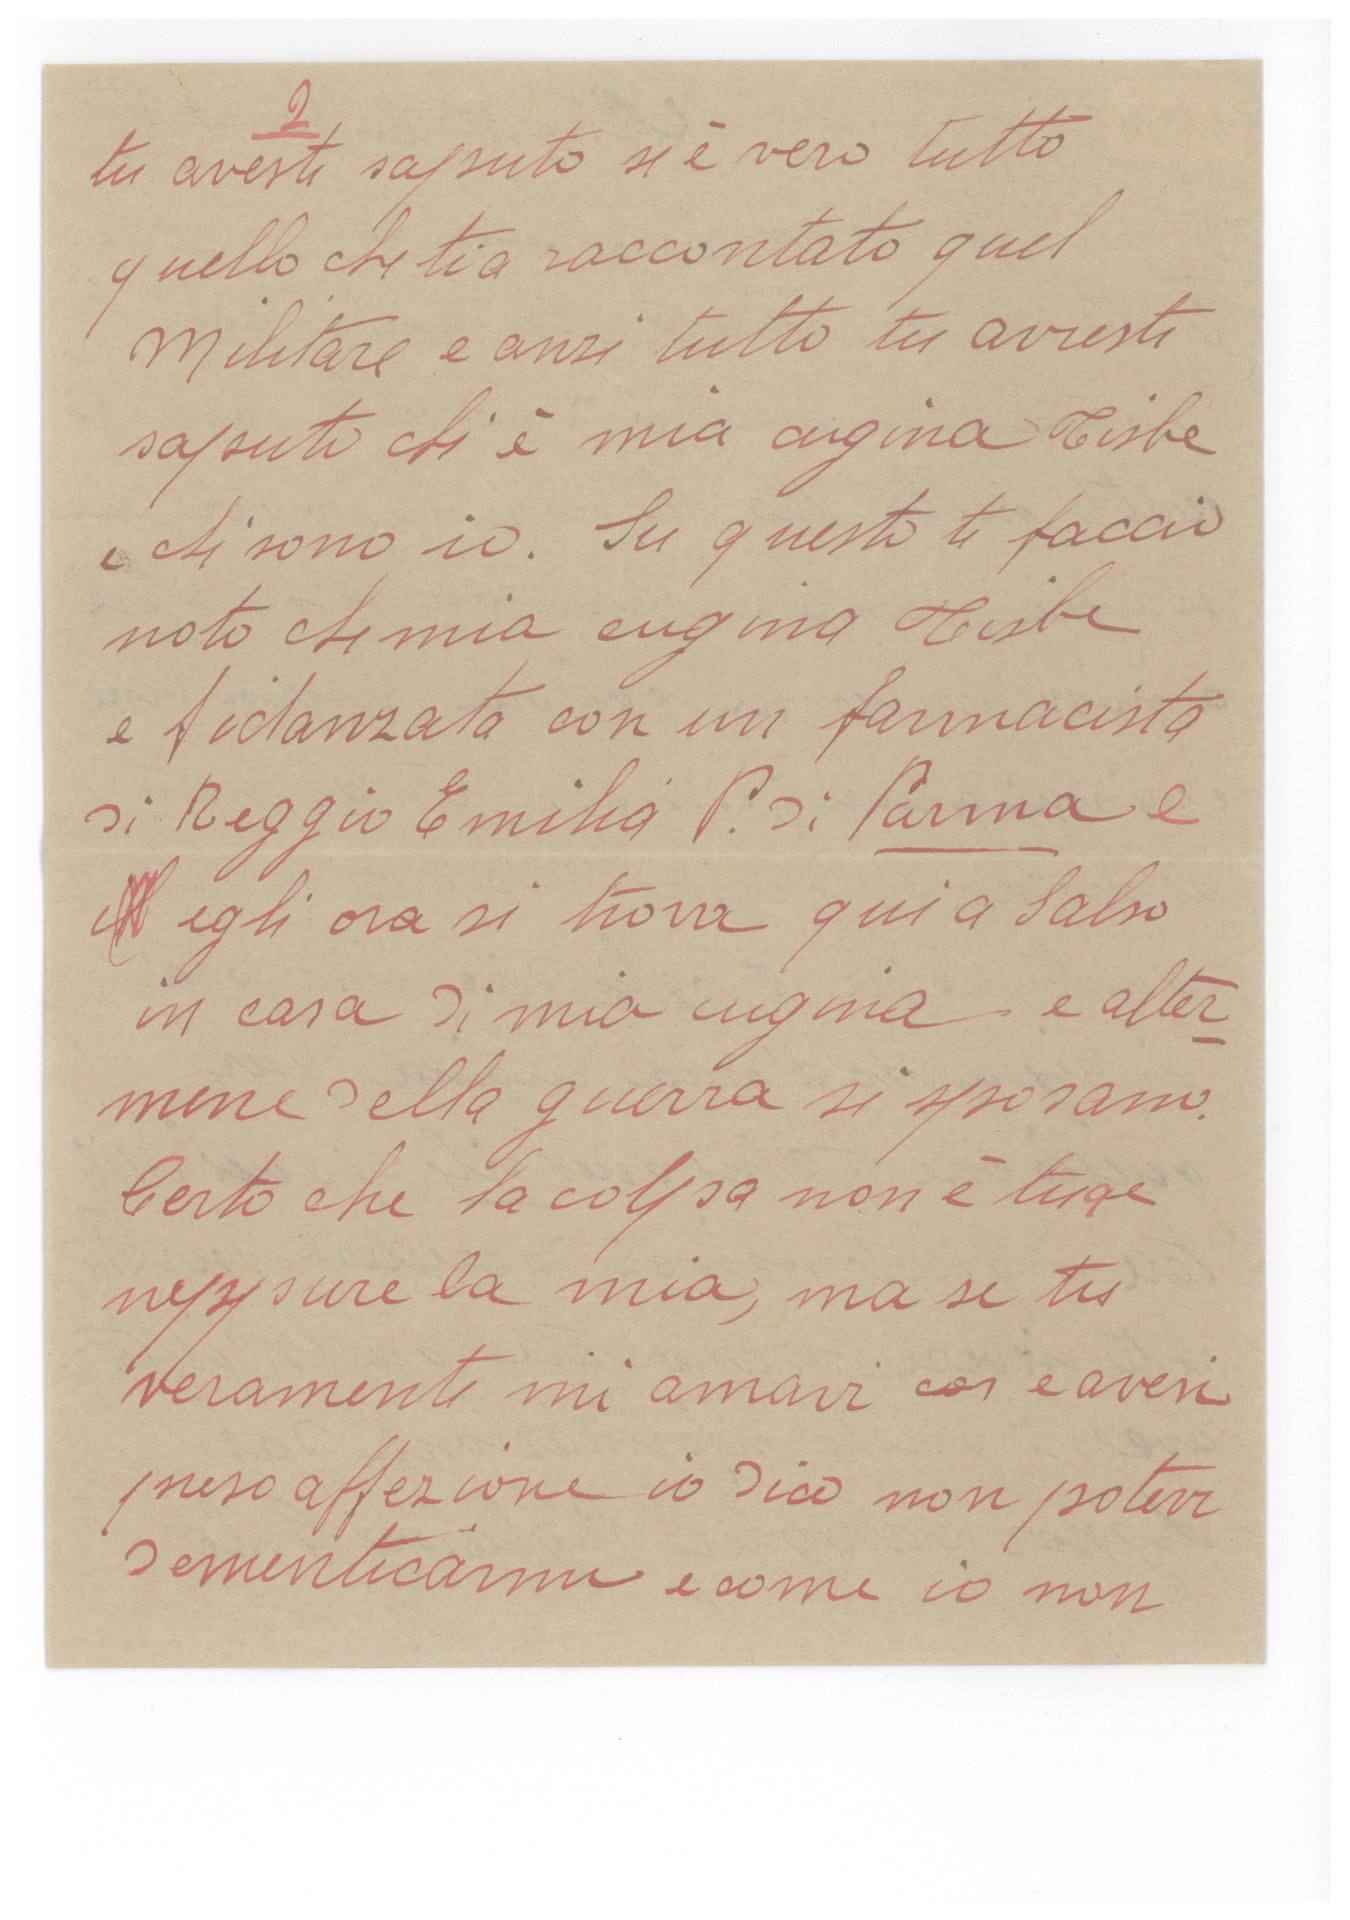 2
tu avesti saputo si è vero tutto
quello che tia raccontato quel
Militare e anzi tutto tu avresti
saputo chi è mia cugina Tisbe
e chi sono io. Su questo ti faccio
noto che mia cugina Tisbe
e fidanzata con un farmacista
di Reggio Emilia P. di Parma e
egli ora si trova qui a Salso
in casa di mia cugina e alter
mene della guerra si sposano.
Certo che la colpa non è tua e
neppure la mia, ma se tu
veramente mi amavi e avevi
preso affezione io dico non potevi
dementicarmi e come io non